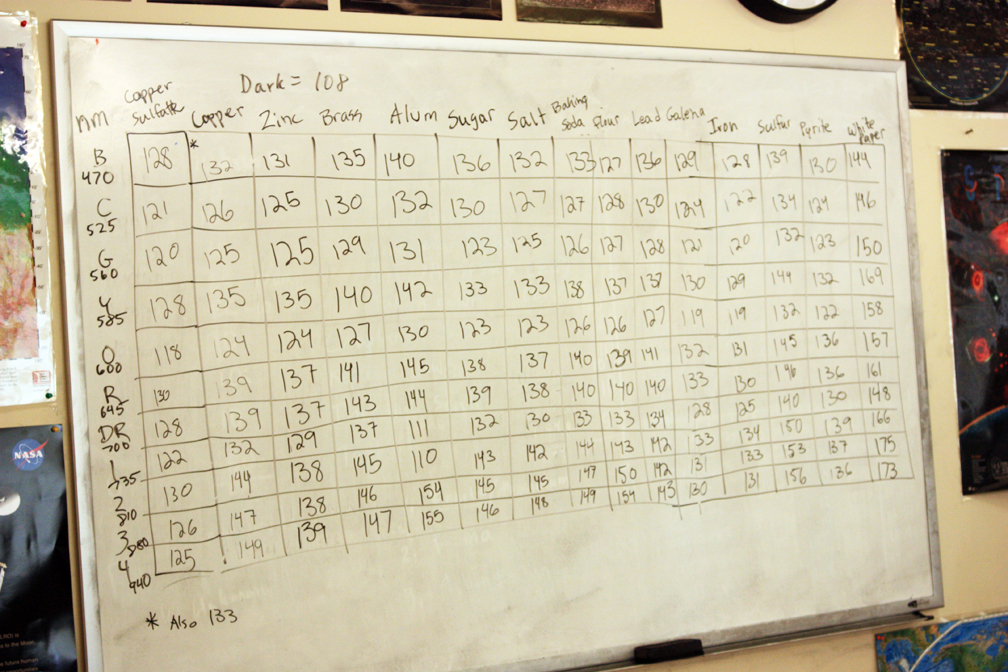 Dark = 108
nm Copper Sulfate Copper Zinc Brass Alum Sugar Salt Baking Soda Flour Lead Galena Iron Sulfur Pyrite White Paper
B 470 128 * 132 131 135 140 136 132 133 127 136 129 128 139 130 144
C 525 121 126 125 130 132 130 127 127 128 130 124 122 134 124 146
G 560 120 125 125 129 131 123 125 126 127 128 121 120 132 123 150
Y 585 128 135 135 140 142 133 133 138 137 137 130 129 144 132 169
O 600 118 124 124 127 130 123 123 126 126 127 119 119 132 122 158
R 645 130 139 137 141 145 138 137 140 139 141 132 131 145 136 157
DR 700 128 139 137 143 144 139 138 140 140 140 133 130 146 136 161
1 735 122 132 129 137 111 132 130 133 133 134 128 125 140 130 148
2 810 130 144 138 145 110 143 142 144 143 142 133 134 150 139 166
3 880 126 147 138 146 154 145 145 147 150 142 131 133 153 137 175
4 940 125 149 139 147 155 146 148 149 154 143 130 131 156 136 173
* Also 133
NASA